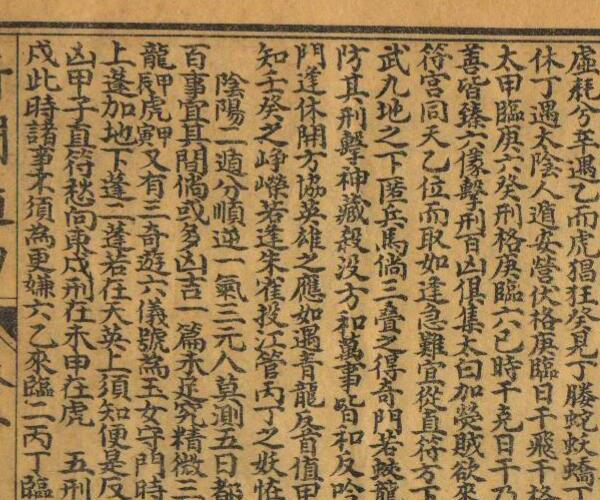 虛耗兮辛遇乙而虎猖狂癸見丁螣蛇妖蟜丁
休丁遇太陰人遁安營伏格庚臨日干飛干格
太甲臨庚六癸刑格庚臨六己時干克日干乃
善皆臻六儀擊刑百凶俱集太白加熒賊欲來
符宮同天乙位而取如逢急難宜從直符方下
武九地之下匿兵馬倘三疊之得奇門若蛟龍
防其刑擊神藏殺没方和萬事皆和反吟
門逢休開方協英雄之應如遇青龍反首值甲
知壬癸之崢嶸若逢朱雀投江管丙丁之妖怪
陰陽二遁分順逆一氣三元人莫測五日都
百事宜其閉倘或多凶吉一篇未足究精微三
龍甲辰虎甲寅又有三奇遊六儀號為玉女守門時
上蓬加地下蓬二蓬若在天英上須知便是反
凶甲子直符愁向東戌刑在未申在虎 五刑
戍此時諸事不須為更嫌六乙來臨二丙丁臨